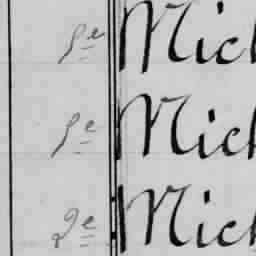 5e Mich
5e Mich
2e Mich